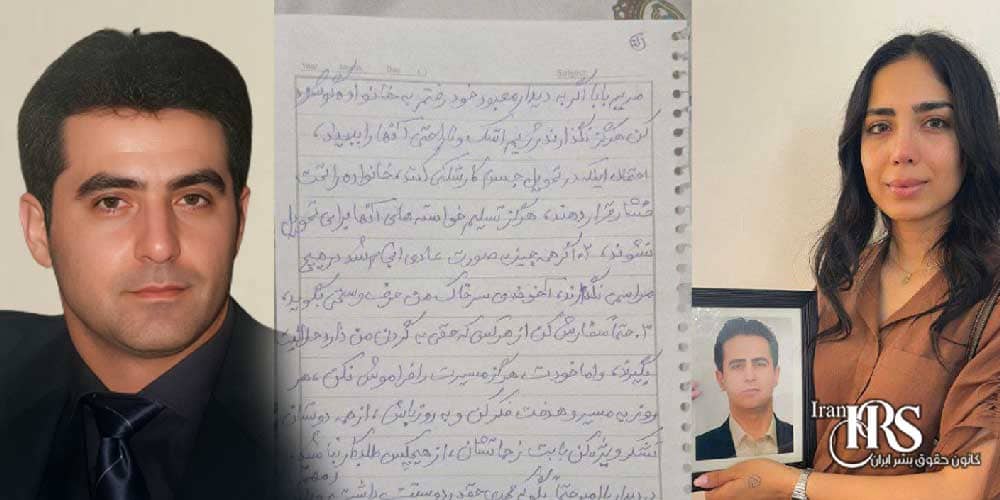 Year Month Day ( )
Subject:
مریم بابا اگر به دیدار معبود خود رفتم به خانواده گوشزد
کن هرگز نگذارند شریم اشک و ناراحتی آنها را ببیند،
احتمال اینکه در تحویل جسم کارشکنی کنند، خانواده را تحت
فشار قرار دهند، هرگز تسلیم خواسته های آنها برای تحویل
نشوند، ۲. اگر همه چیز به صورت عادی انجام شد در هیچ
مراسمی نگذارند، آخوندی سر خاک من حرف و سخنی بگوید،
۳. حتماً سفارش کن از هر کس که حقی به گردن من دارد حلالیت
بگیرند، و اما خودت، هرگز مسیرت را فراموش نکن، هر
روز به مسیر و هدفت فکر کن و به روز باش، از همه دوستان
تشکر ویژه کن بابت زحماتشان، از هیچکس طلبکار نباشید
Iran
HRS
کانون حقوق بشر ایران